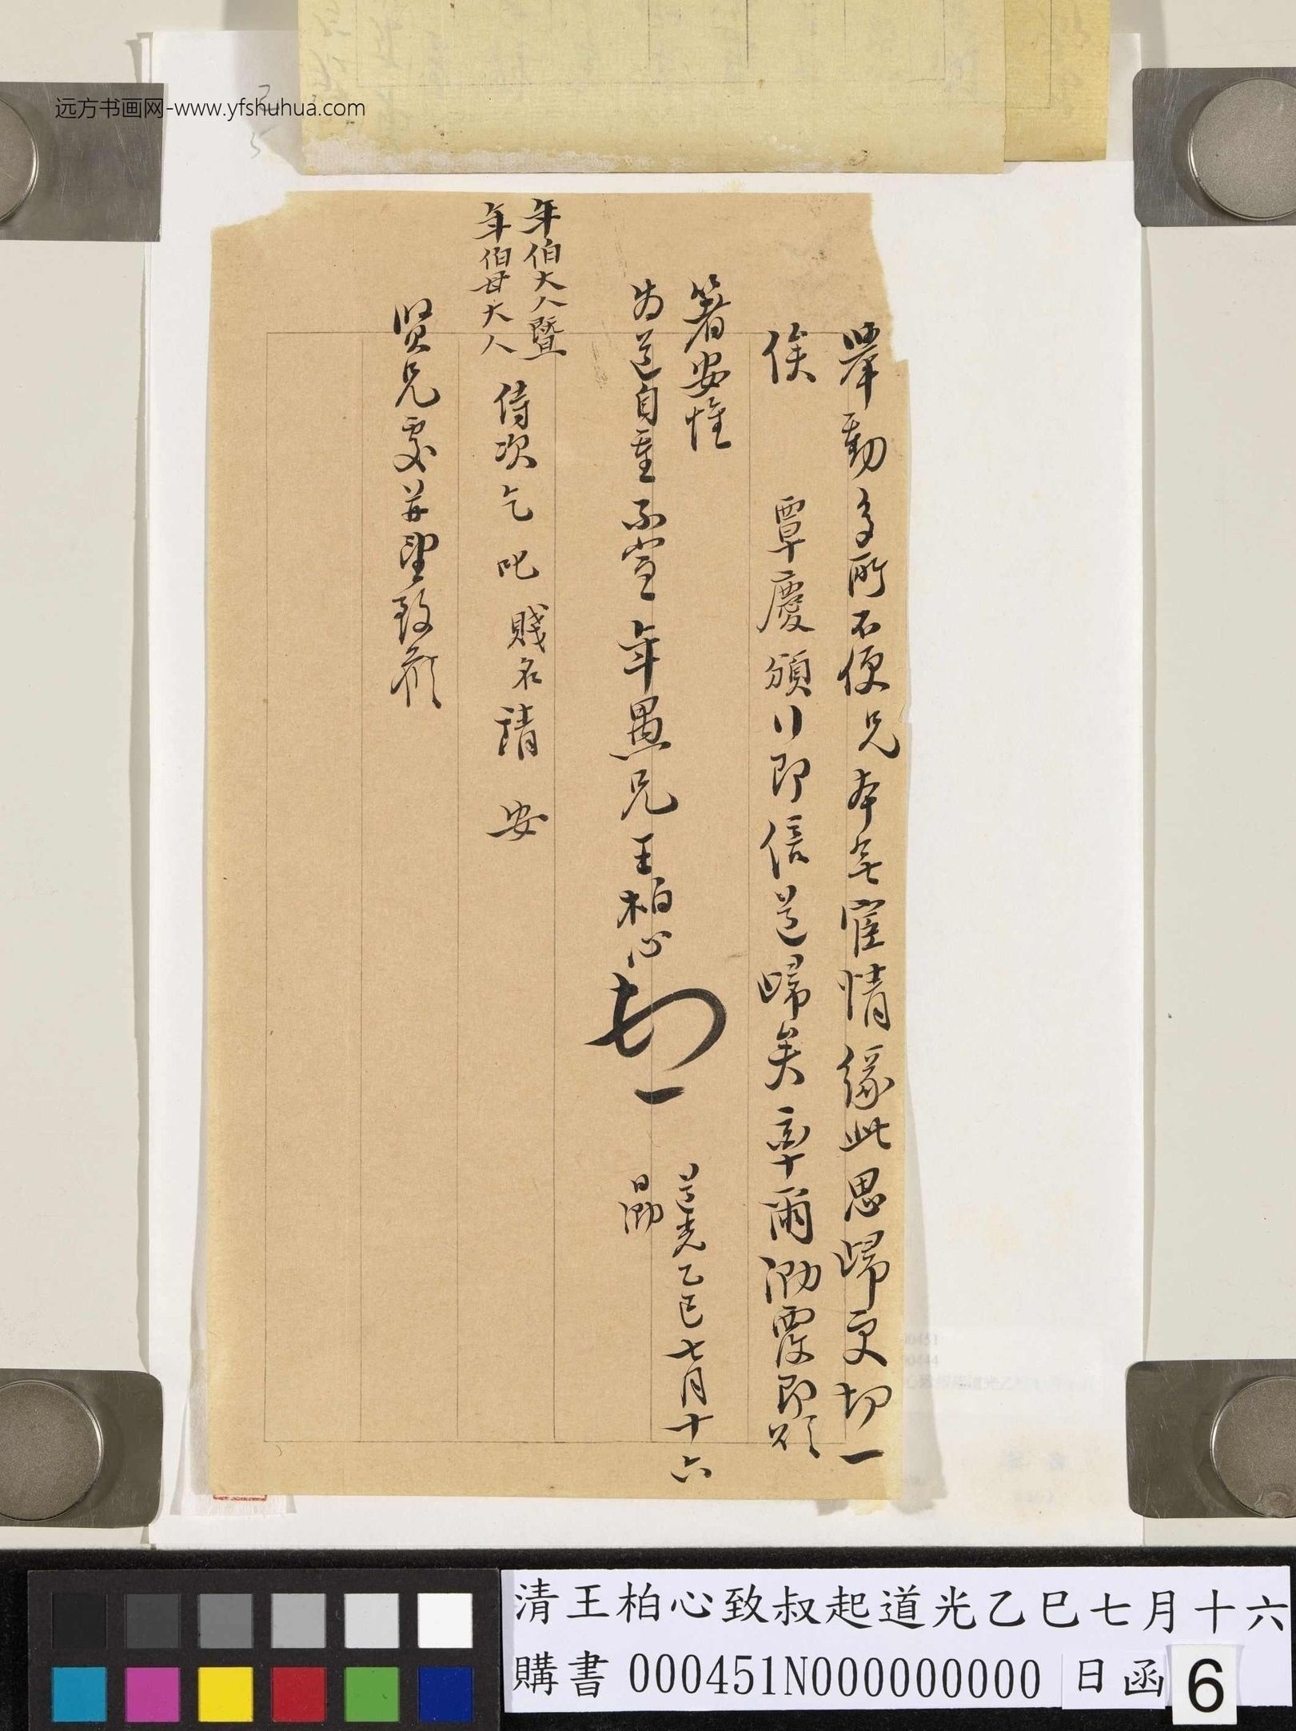 远方书画网-www.yfshuhua.com
舉動多所不便兄本無宦情緣此思歸更切一
俟 覃慶頒行即信道歸矣率爾泐覆即頌
箸安惟
為道自重不宣年愚兄王柏心頓首
道光乙巳七月十六
日泐
年伯大人暨
年伯母大人
侍次乞叱賤名請安
賢兄處并望致頌
清王柏心致叔起道光乙巳七月十六
購書 000451N000000000 日函
6